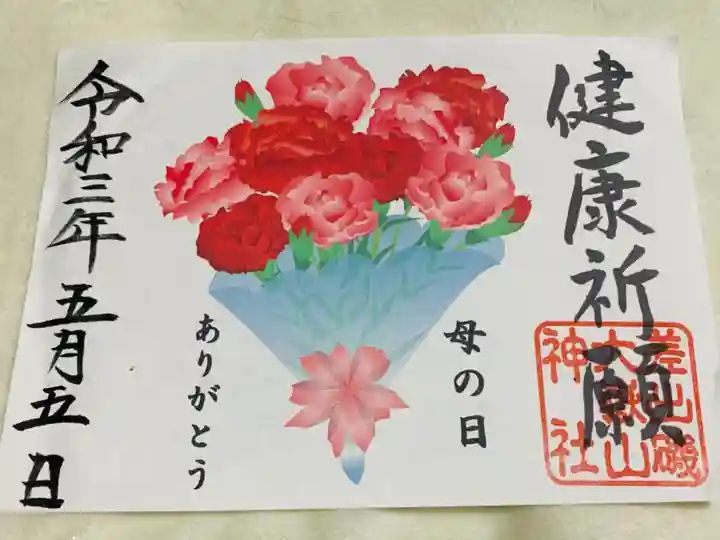 健康祈願
差出磯
大嶽山
神社
母の日
ありがとう
令和三年 五月五日